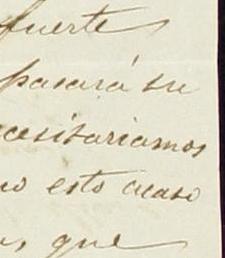 fuerte
pasará su
cesitariamos
no esto acaso
que